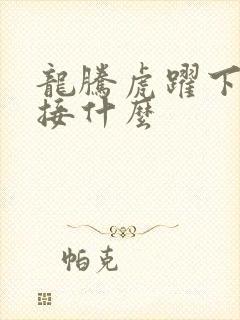 龍騰虎躍下
接什麼
帕克